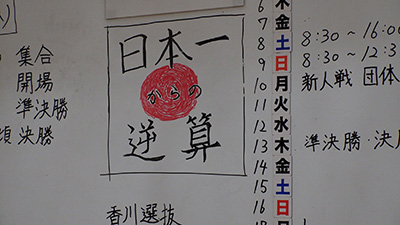 集合
開場
準決勝
頃 決勝
日本一
からの
逆算
香川選抜
6 木
7 金
8 土 8:30～16:00
9 日 8:30～12:3
10 月 新人戦 団体
11 火
12 水
13 木 準決勝・決
14 金
15 土
16 日
月